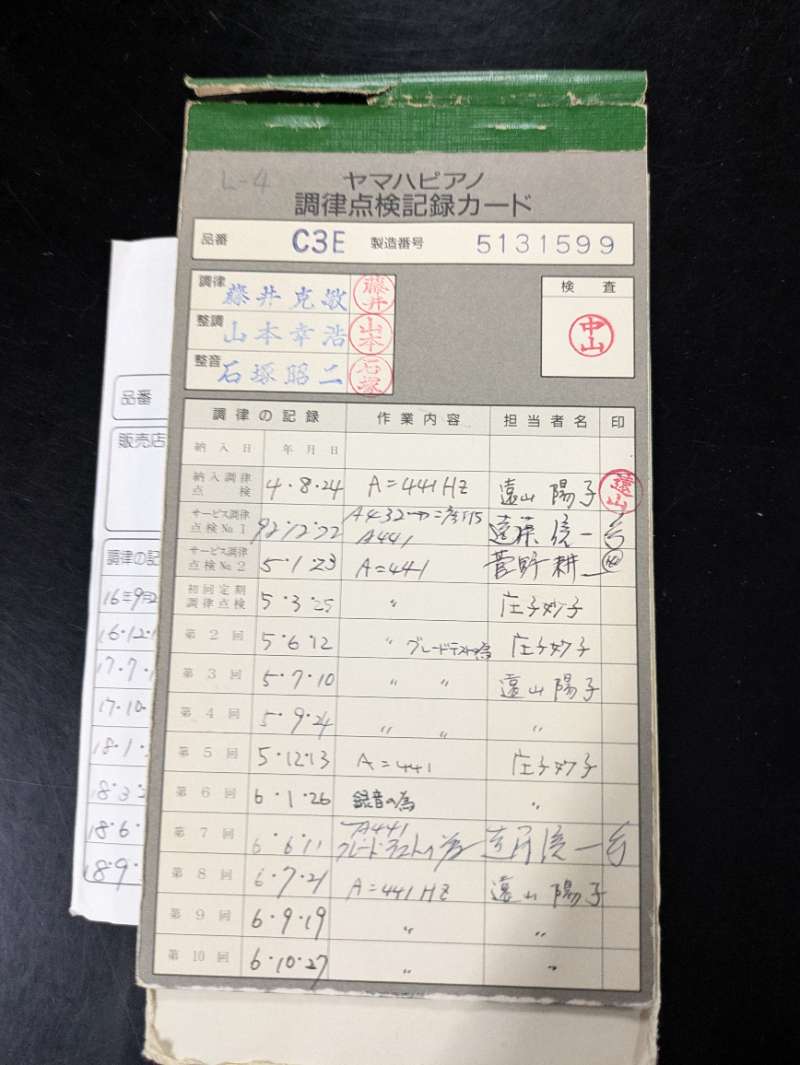 L-4
ヤマハピアノ
調律点検記録カード
品番 C3E 製造番号 5131599
調律 藤井克敏 藤井
整調 山本幸浩 山本
整音 石塚昭二 石塚
検査
中山
調律の記録 作業内容 担当者名 印
納入日 年月日
納入調律点検 4・8・24 A=441HZ 遠山 陽子 遠山
サービス調律点検No1 92・12・22 A432 A441
サービス調律点検No2 5・1・23 A=441 菅野 耕一
初回定期調律点検 5・3・25 〃 庄子妙子
第2回 5・6・12 〃 グレードテストの為 庄子妙子
第3回 5・7・10 〃 〃 遠山 陽子
第4回 5・9・24 〃 〃 〃
第5回 5・12・13 A=441 庄子妙子
第6回 6・1・26 録音の為 〃
第7回 6・6・11 A441 グレードテストの為
第8回 6・7・21 A=441HZ 遠山 陽子
第9回 6・9・19 〃 〃
第10回 6・10・27 〃 〃
品番
販売店
調律の記
16年9月2
16・12・1
17・7・1
17・10・
18・1・
18・3・
18・6・
18・9・